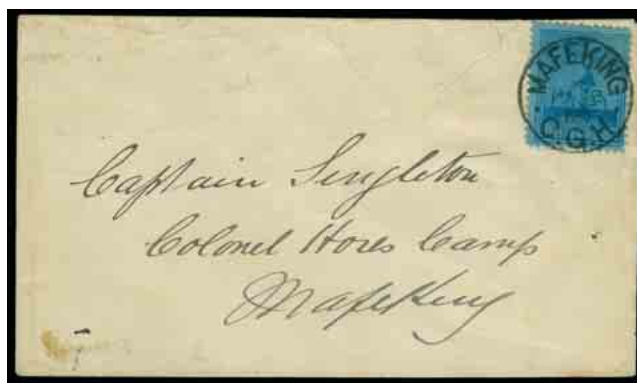 MAFEKING
C.G.H.
Captain Singleton
Colonel Hores Camp
Mafeking